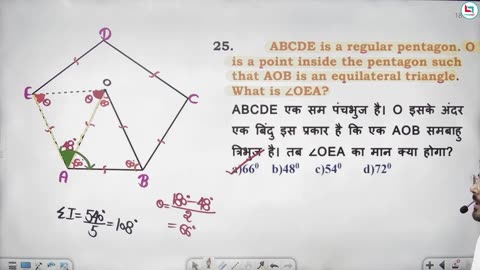 25. ABCDE is a regular pentagon. O
is a point inside the pentagon such
that AOB is an equilateral triangle.
What is ∠OEA?
ABCDE एक सम पंचभुज है। O इसके अंदर
एक बिंदु इस प्रकार है कि एक AOB समबाहु
त्रिभुज है। तब ∠OEA का मान क्या होगा?
a)66⁰ b)48⁰ c)54⁰ d)72⁰
D
E
O
C
θ
θ
48°
60°
60°
A
B
ΣI = 540°/5 = 108°
θ = 180° - 48°/2
= 66°